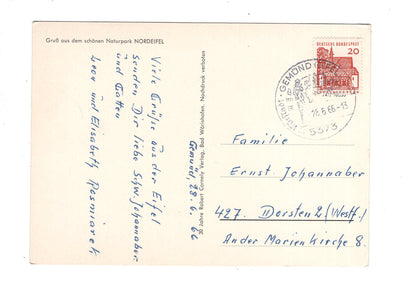 Gruß aus dem schönen Naturpark NORDEIFEL
Viele Grüße aus der Eifel
senden Dir liebe Schw. Johannaber
und Tatten
Leon und Elisabeth Rosmiarek
Gemünd 28.6.66
30 Jahre Robert Cornely Verlag, Bad Wörishofen, Nachdruck verboten
DEUTSCHE BUNDESPOST
20
GEMÜND (EIFEL)
28.6.66-13
5373
Familie
Ernst Johannaber
427. Dorsten 2 (Westf.)
An der Marienkirche 8.